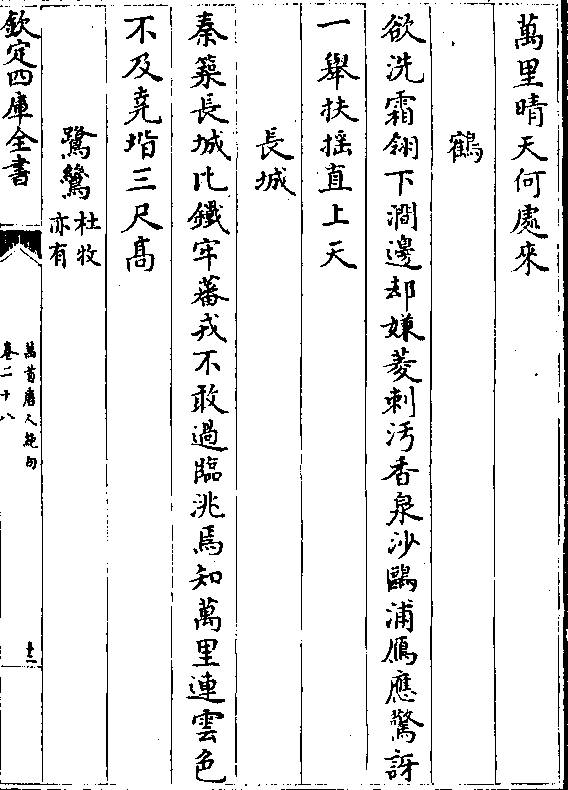 萬里晴天何處來
鶴
欲洗霜翎下澗邊却嫌菱刺汚香泉沙鷗浦鴈應驚訝
一舉扶摇直上天
長城
秦築長城比鐵牢蕃戎不敢過臨洮焉知萬里連雲色
不及堯堦三尺髙
鷺鷥
杜牧
亦有
欽定四庫全書
萬首唐人絶句
卷二十八
十三